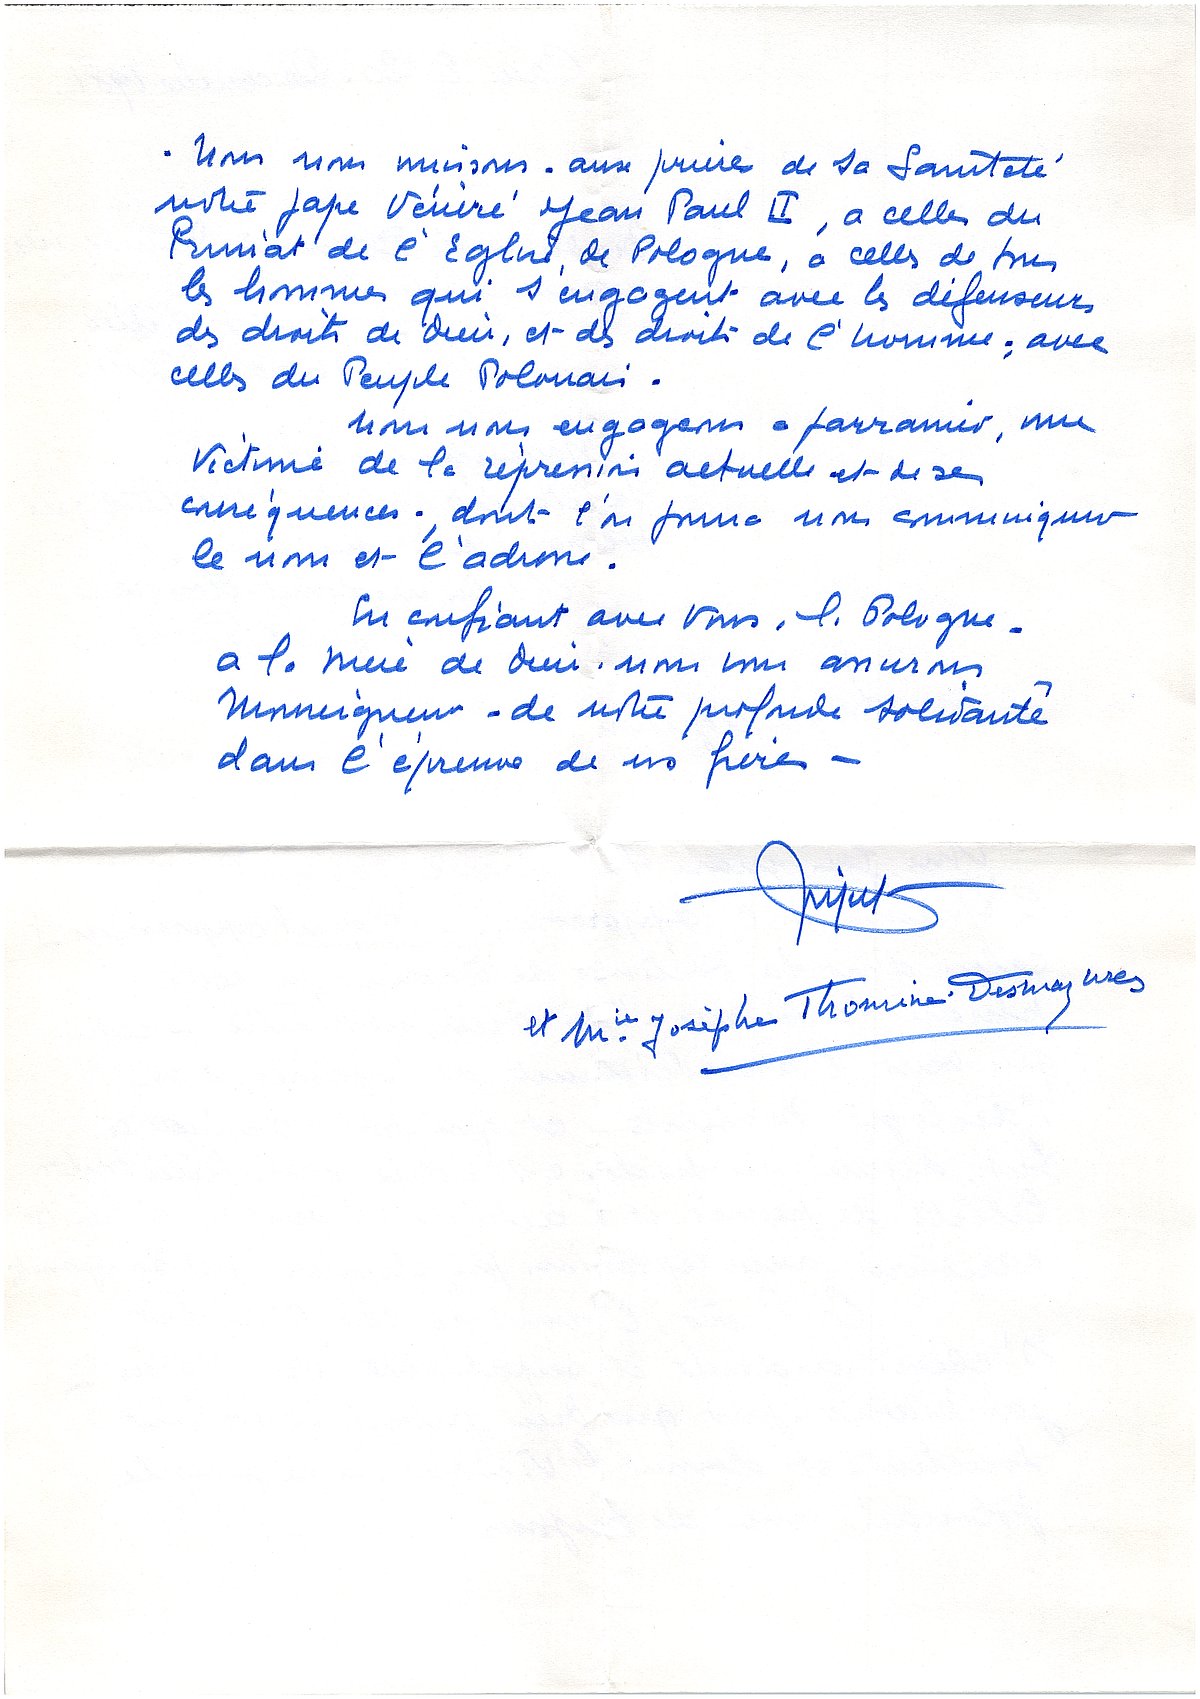 . Nous nous unissons - aux prières de Sa Sainteté
notre pape Vénéré Jean Paul II, a celles du
Primat de l'Eglise de Pologne, a celles de tous
les hommes qui s'engagent avec les défenseurs
des droits de Dieu, et des droits de l'homme ; avec
celles du Peuple Polonais.
Nous nous engageons a parrainer, une
Victime de la répression actuelle et de ses
conséquences -, dont l'on pourra nous communiquer
le nom et l'adresse.
En confiant avec Vous, la Pologne -
a la Mère de Dieu. nous vous assurons
Monseigneur - de notre profonde solidarité
dans l'épreuve de nos frères -
et Mie Josèphe Thomine-Desmazures